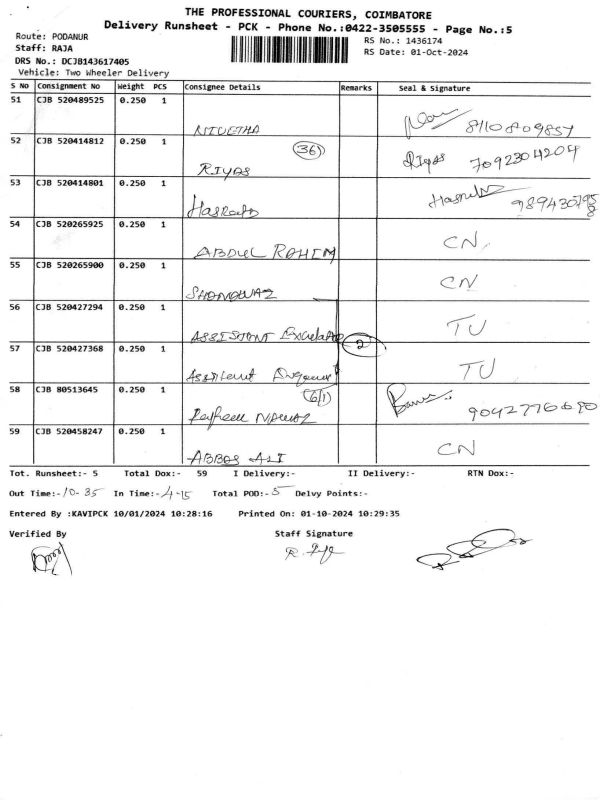 THE PROFESSIONAL COURIERS, COIMBATORE
Delivery Runsheet - PCK - Phone No.:0422-3505555 - Page No.:5
Route: PODANUR
Staff: RAJA
DRS No.: DCJB143617405
Vehicle: Two Wheeler Delivery
RS No.: 1436174
RS Date: 01-Oct-2024
S No Consignment No Weight PCS Consignee Details Remarks Seal & Signature
51 CJB 520489525 0.250 1 NIVETHA
52 CJB 520414812 0.250 1 RIYAS 36 Riyas 7092304204
53 CJB 520414801 0.250 1
54 CJB 520265925 0.250 1 ABDUL RAHIM CN
55 CJB 520265900 0.250 1 SHANAWAZ CN
56 CJB 520427294 0.250 1 ASSISTANT TU
57 CJB 520427368 0.250 1 2 TU
58 CJB 80513645 0.250 1 6/1 NAWAZ
59 CJB 520458247 0.250 1 ABBAS ALI CN
Tot. Runsheet:- 5 Total Dox:- 59 I Delivery:- II Delivery:- RTN Dox:-
Out Time:- 10-35 In Time:- 4-15 Total POD:- 5 Delvy Points:-
Entered By :KAVIPCK 10/01/2024 10:28:16 Printed On: 01-10-2024 10:29:35
Verified By Staff Signature